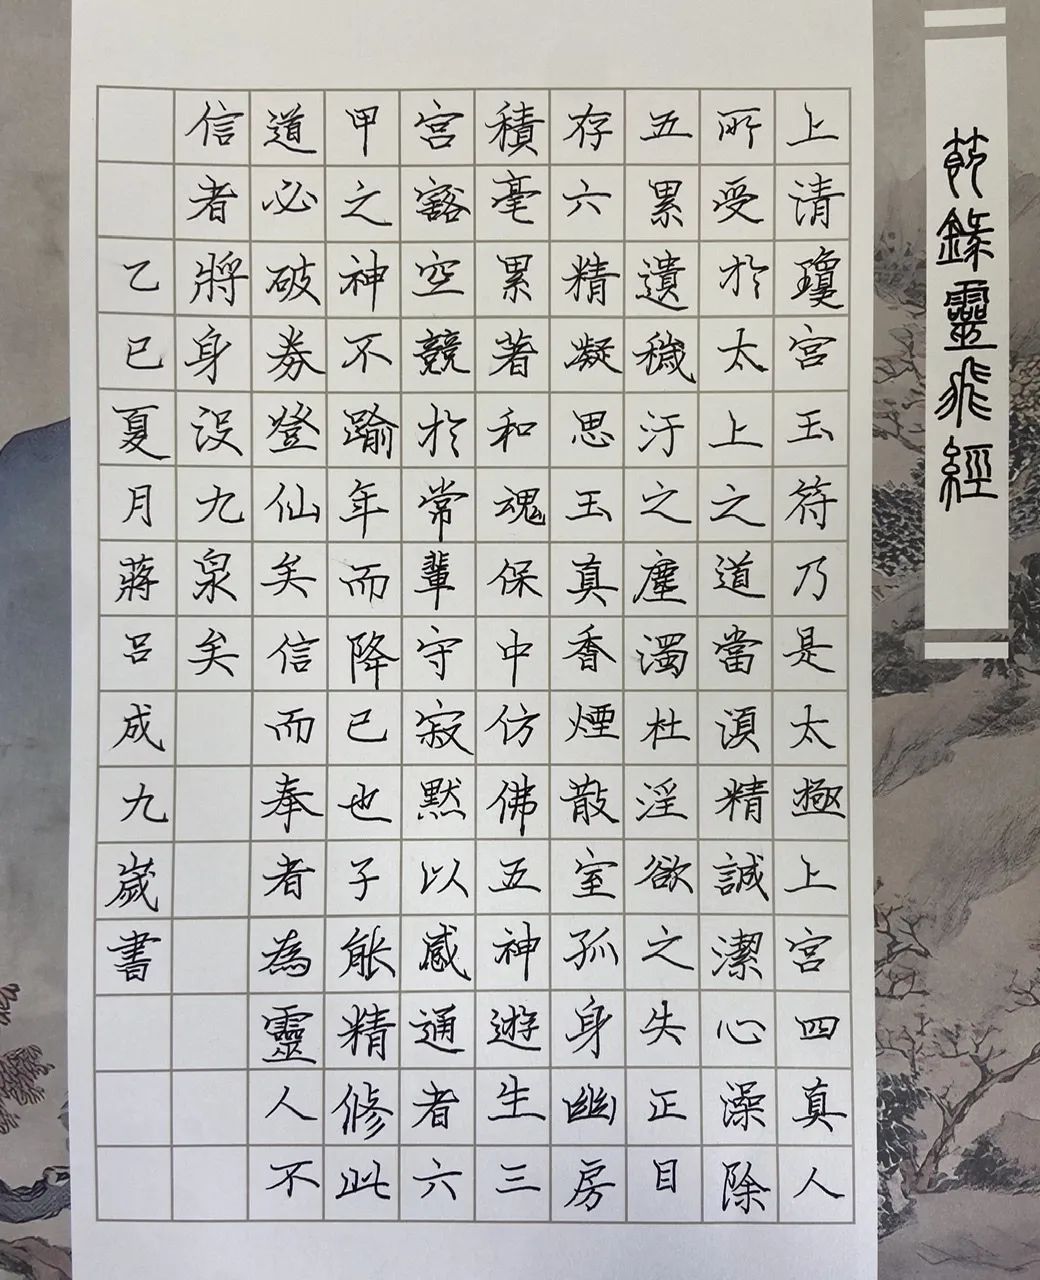 節錄靈飛經
上清瓊宮玉符乃是太極上宮四真人
所受於太上之道當須精誠潔心澡除
五累遺穢汙之塵濁杜淫欲之失正目
存六精凝思玉真香煙散室孤身幽房
積毫累著和魂保中仿佛五神遊生三
宮豁空競於常輩守寂默以感通者六
甲之神不踰年而降已也子能精修此
道必破券登仙矣信而奉者為靈人不
信者將身沒九泉矣
乙巳夏月蔣呂成九歲書